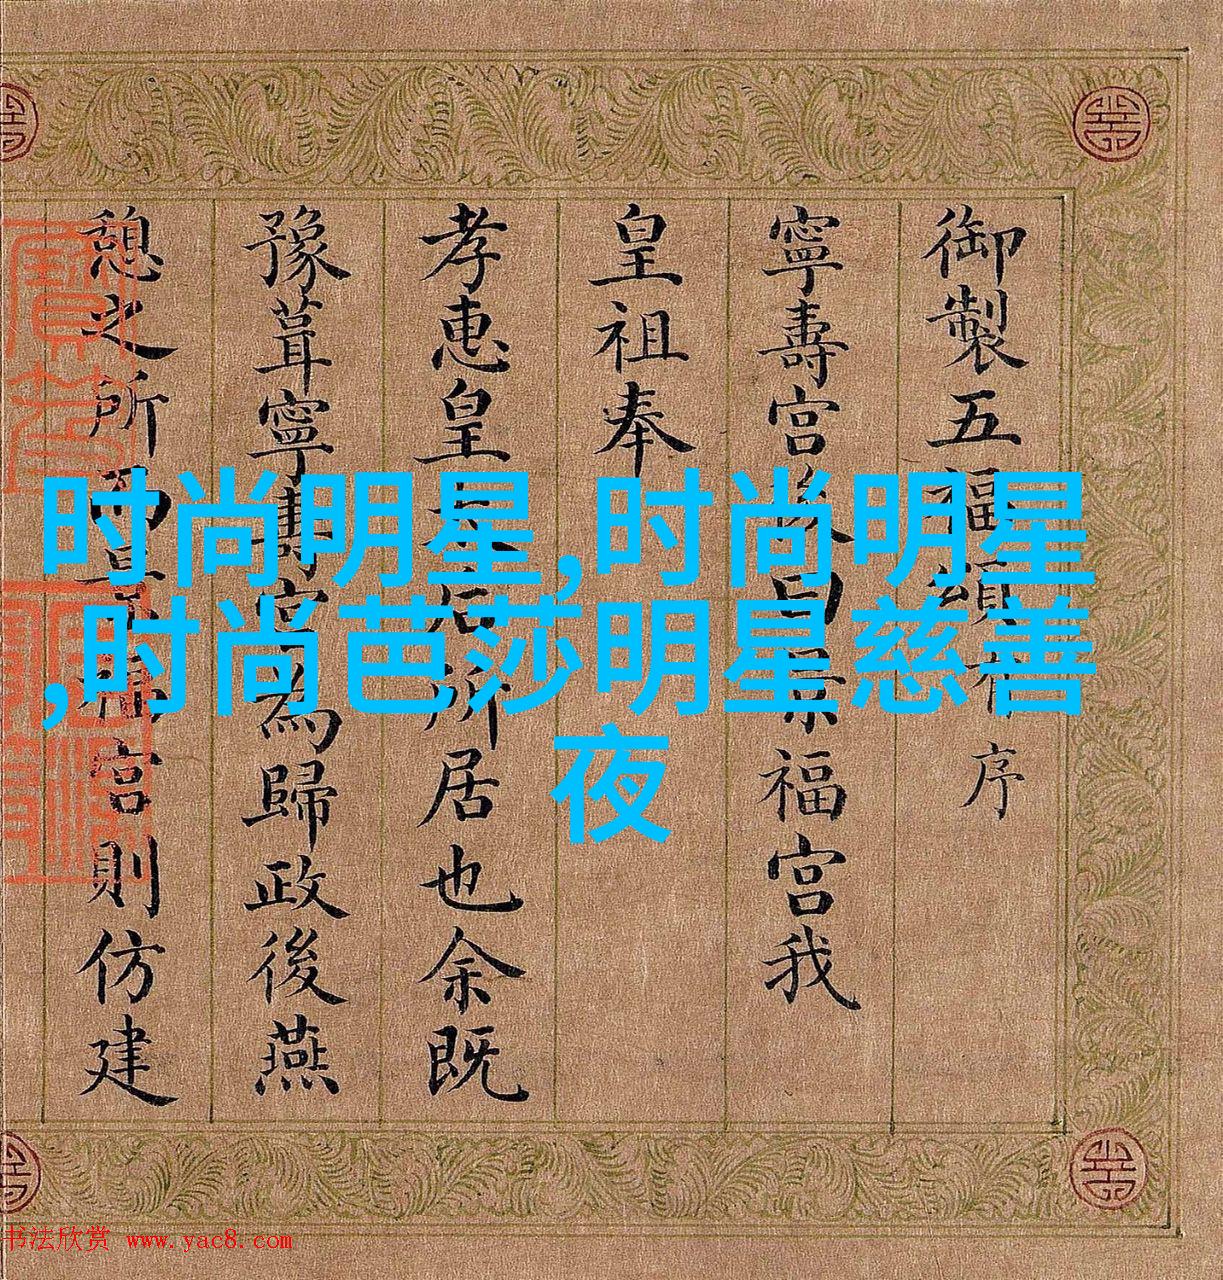 御製五福頌序
寧壽宮後曰景福宮我
皇祖奉
孝惠皇太后所居也余既
豫葺寧壽宮為歸政後燕
憩之所而景福宮則仿建
时尚明星,时尚明星
,时尚芭莎明星慈善
夜
书法欣赏 www.yac8.com